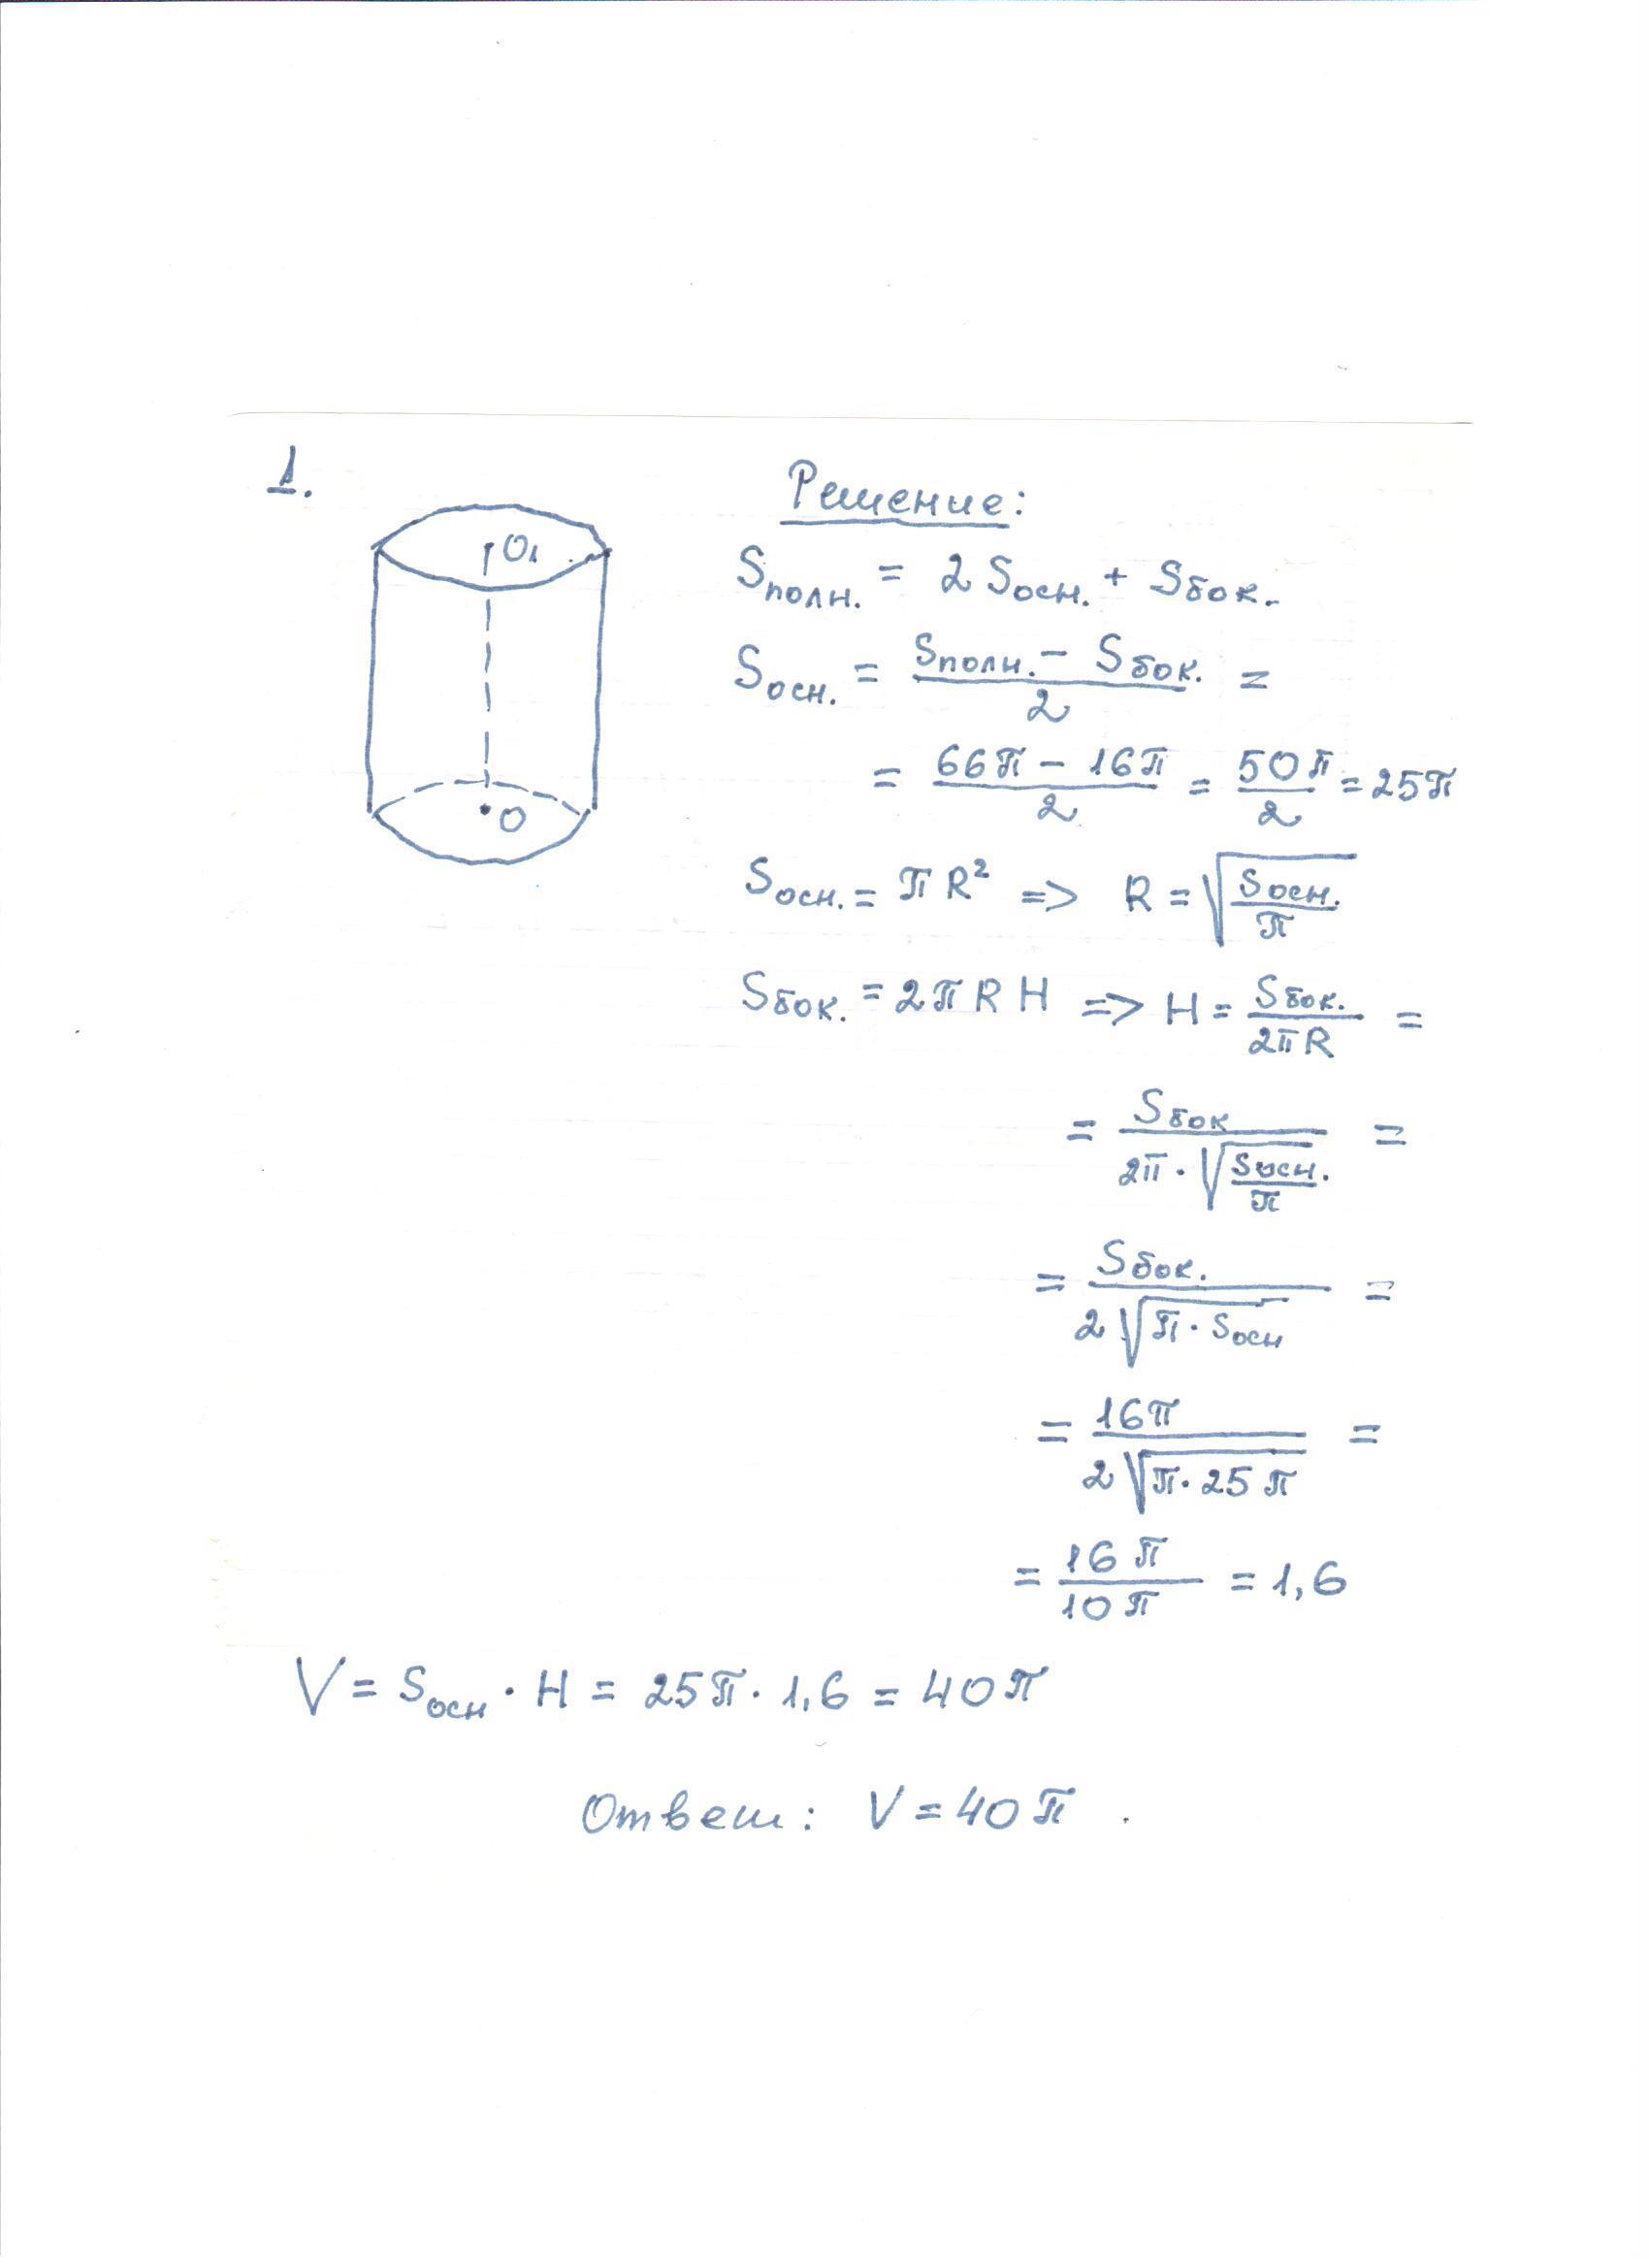 1.
Решение:
O₁
O
Sполн. = 2 Sосн. + Sбок.
Sосн. = (Sполн. − Sбок.)/2 =
= (66π − 16π)/2 = 50π/2 = 25π
Sосн. = πR² => R = √(Sосн./π)
Sбок. = 2πRH => H = Sбок./(2πR) =
= Sбок/(2π · √(Sосн./π)) =
= Sбок./(2√(π · Sосн)) =
= 16π/(2√(π · 25π)) =
= 16π/10π = 1,6
V = Sосн · H = 25π · 1,6 = 40π
Ответ: V = 40π.